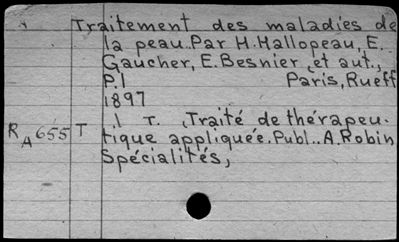 Traitement des maladies de
la peau. Par H. Hallopeau, E.
Gaucher, E. Besnier, et aut.,
P. I Paris, Rueff
1897
1 T. (Traité de thérapeu-
RA 655 T tique appliquée. Publ.. A. Robin
Spécialités,